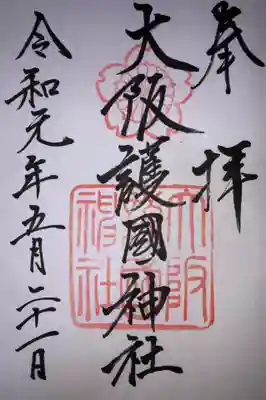 奉拝
大阪護國神社
令和元年五月二十一日